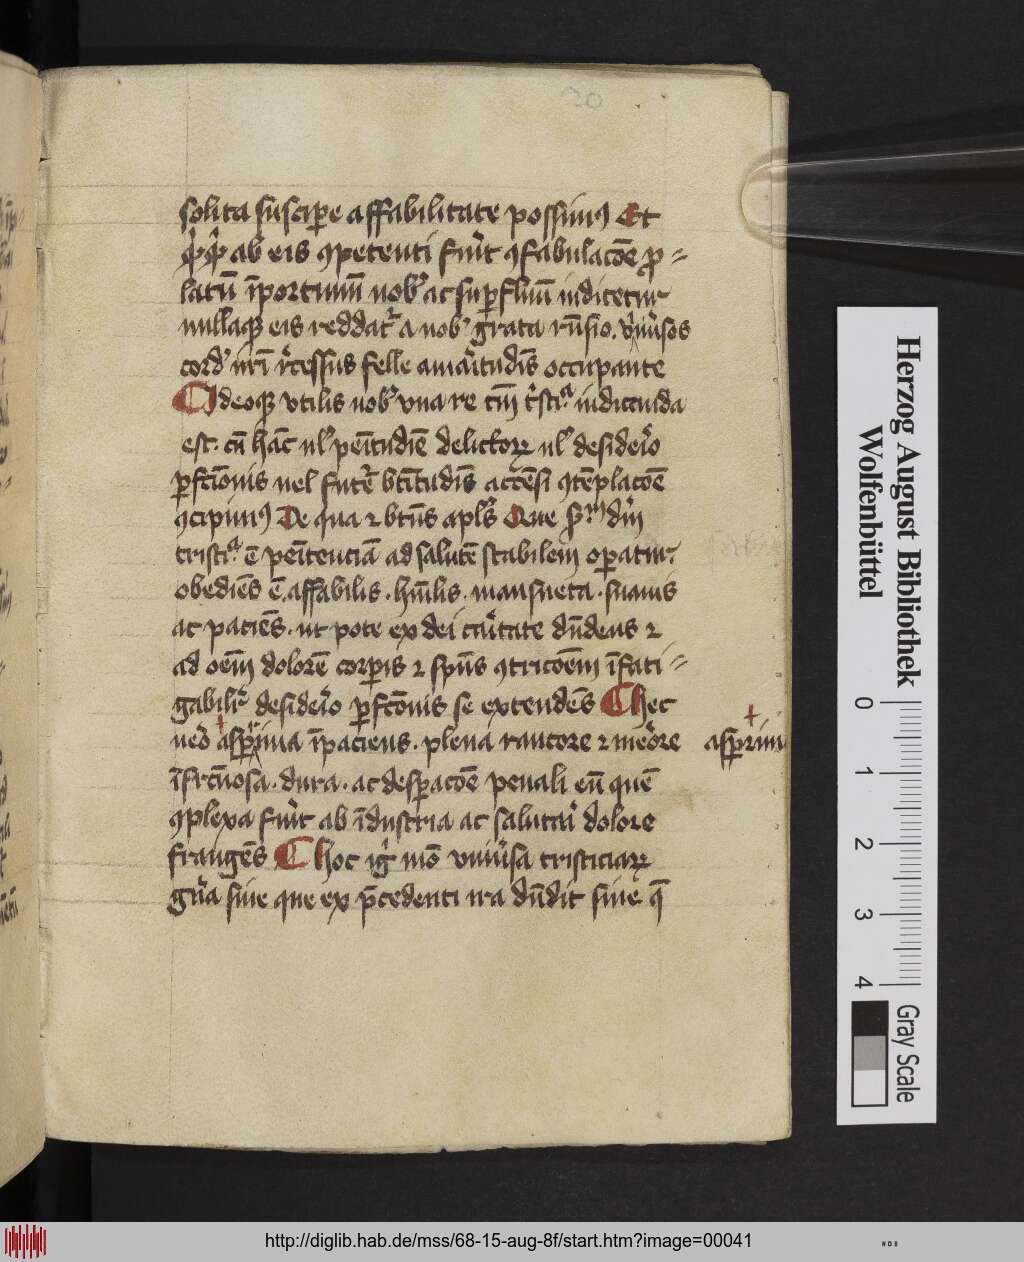 20
solita suscip̲e affabilitate possimꝰ Et
q̇cq̇d ab eis ꝯpetenti fu̇it ꝯfabulacōe ꝓ=
latū īportunū nobˀ ac suꝑfluū iudicetur
nullaqꝫ eis reddatˀ a nobˀ grata rn̄sio. vniu̇sos
cordˀ nr̄i rͨcessus felle amaritudīs occupante
Ideoqꝫ vtilis nobˀ vna re tm̄ tˀsticᵃ iudicanda
est. cū hāc ul̓ penītudīe delictorꝝ ul̓ desiderͦo
ꝑfctīonis uel futr̄e btītudīs accēsi ꝯtēplacōe
ꝯcipimꝰ De qua ⁊ btūs apl̓s Que scd̄m dm̄
tristicᵃ ē penītentiā ad salutē stabilem oꝑatur.
obediēs ē. affabilis. hūilis. mansueta. suauis
ac paciēs. ut pote ex dei caritate dn̄dens ⁊
ad oēm dolorē corꝑis ⁊ spūs ꝯtricōem īfati=
gabilitˀ desiderͦo ꝑfctōnis se extendēs hec
ueͦo asꝑrima īpaciens. plena rancore ⁊ merͦore
asꝑrim
īfrcūosa. dura. ac desꝑacōe penali eū quē
ꝯplexa fu̇it ab īdustria ac salutari dolore
frangēs hoc ig̓ mō vniu̓sa tristiciarꝝ
gn̄a siue que ex p̄cedenti ira dn̄dit siue q̄
Herzog August Bibliothek
Wolfenbüttel
0 1 2 3 4
Gray Scale
http://diglib.hab.de/mss/68-15-aug-8f/start.htm?image=00041